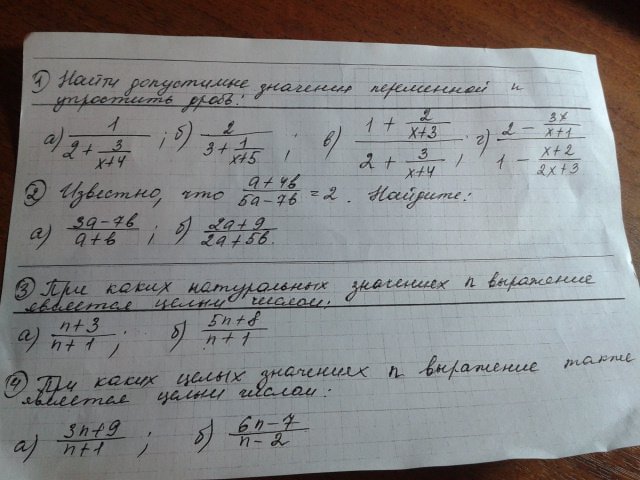 1 Найти допустимые значения переменной и
упростить дробь:
а) 1/(2 + 3/(x+4)) ; б) 2/(3 + 1/(x+5)) ; в) (1 + 2/(x+3))/(2 + 3/(x+4)) ; г) (2 - 3x/(x+1))/(1 - (x+2)/(2x+3))
2 Известно, что (a+4b)/(5a-7b) = 2. Найдите:
а) (3a-7b)/(a+b) ; б) (2a+9)/(2a+5b).
3 При каких натуральных значениях n выражение
является целым числом:
а) (n+3)/(n+1) ; б) (5n+8)/(n+1)
4 При каких целых значениях n выражение также
является целым числом:
а) (3n+9)/(n+1) ; б) (6n-7)/(n-2)